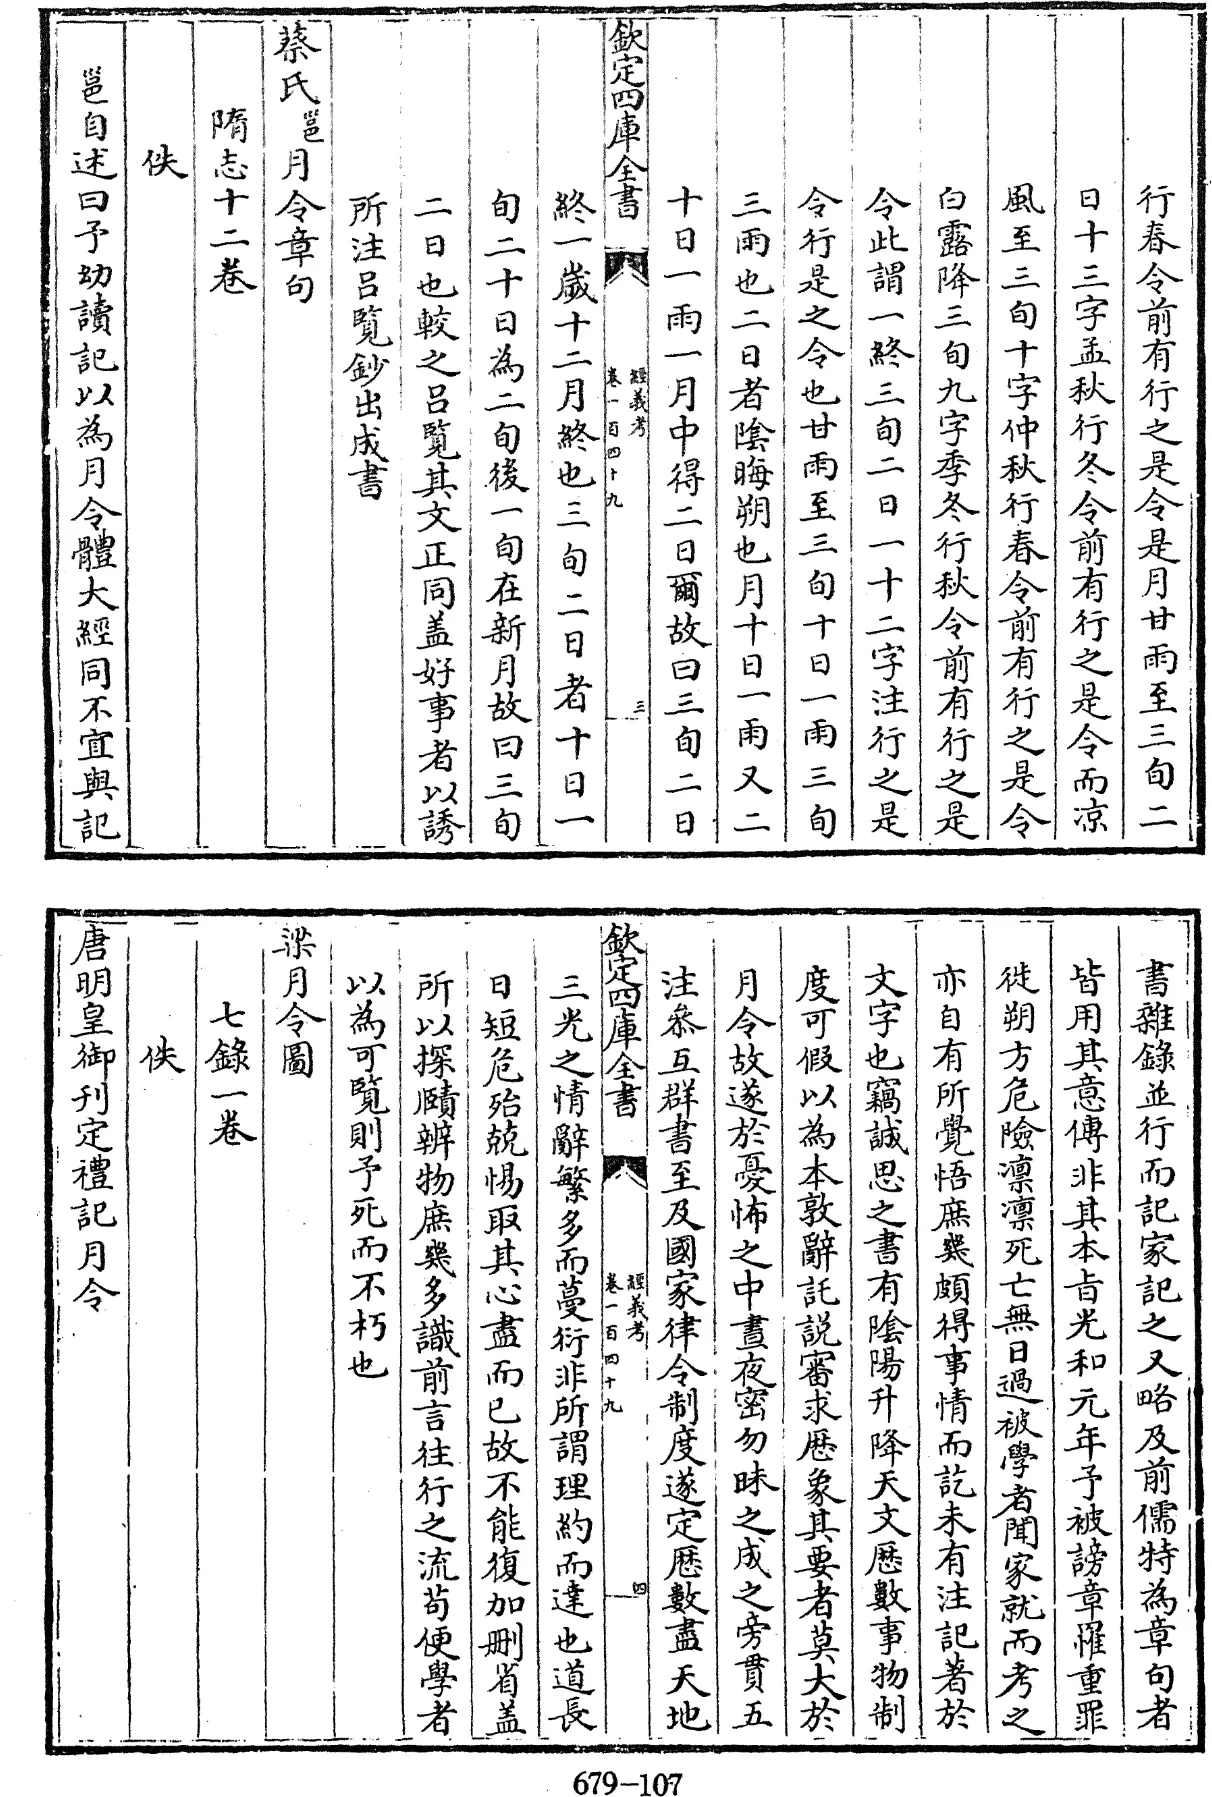 行春令前有行之是令是月甘雨至三旬二
日十三字孟秋行冬令前有行之是令而凉
風至三旬十字仲秋行春令前有行之是令
白露降三旬九字季冬行秋令前有行之是
令此謂一終三旬二日一十二字注行之是
令行是之令也甘雨至三旬十日一雨三旬
三雨也二日者陰晦朔也月十日一雨又二
十日一雨一月中得二日爾故曰三旬二日
欽定四庫全書
經義考
卷一百四十九
三
終一歲十二月終也三旬二日者十日一
旬二十日為二旬後一旬在新月故曰三旬
二日也較之呂覽其文正同盖好事者以誘
所注呂覽鈔出成書
蔡氏邕月令章句
隋志十二卷
佚
邕自述曰予幼讀記以為月令體大經同不宜與記
書雜錄並行而記家記之又略及前儒特為章句者
皆用其意傳非其本旨光和元年予被謗章罹重罪
徙朔方危險凛凛死亡無日過被學者聞家就而考之
亦自有所覺悟庶幾頗得事情而訖未有注記著於
文字也竊誠思之書有陰陽升降天文歴數事物制
度可假以為本敦辭託説審求歴象其要者莫大於
月令故遂於憂怖之中晝夜密勿昧之成之旁貫五
注叅互群書至及國家律令制度遂定歴數盡天地
欽定四庫全書
經義考
卷一百四十九
四
三光之情辭繁多而蔓衍非所謂理約而達也道長
日短危殆兢惕取其心盡而已故不能復加删省盖
所以探賾辨物庶幾多識前言往行之流苟便學者
以為可覽則予死而不朽也
梁月令圖
七錄一卷
佚
唐明皇御刊定禮記月令
679-107